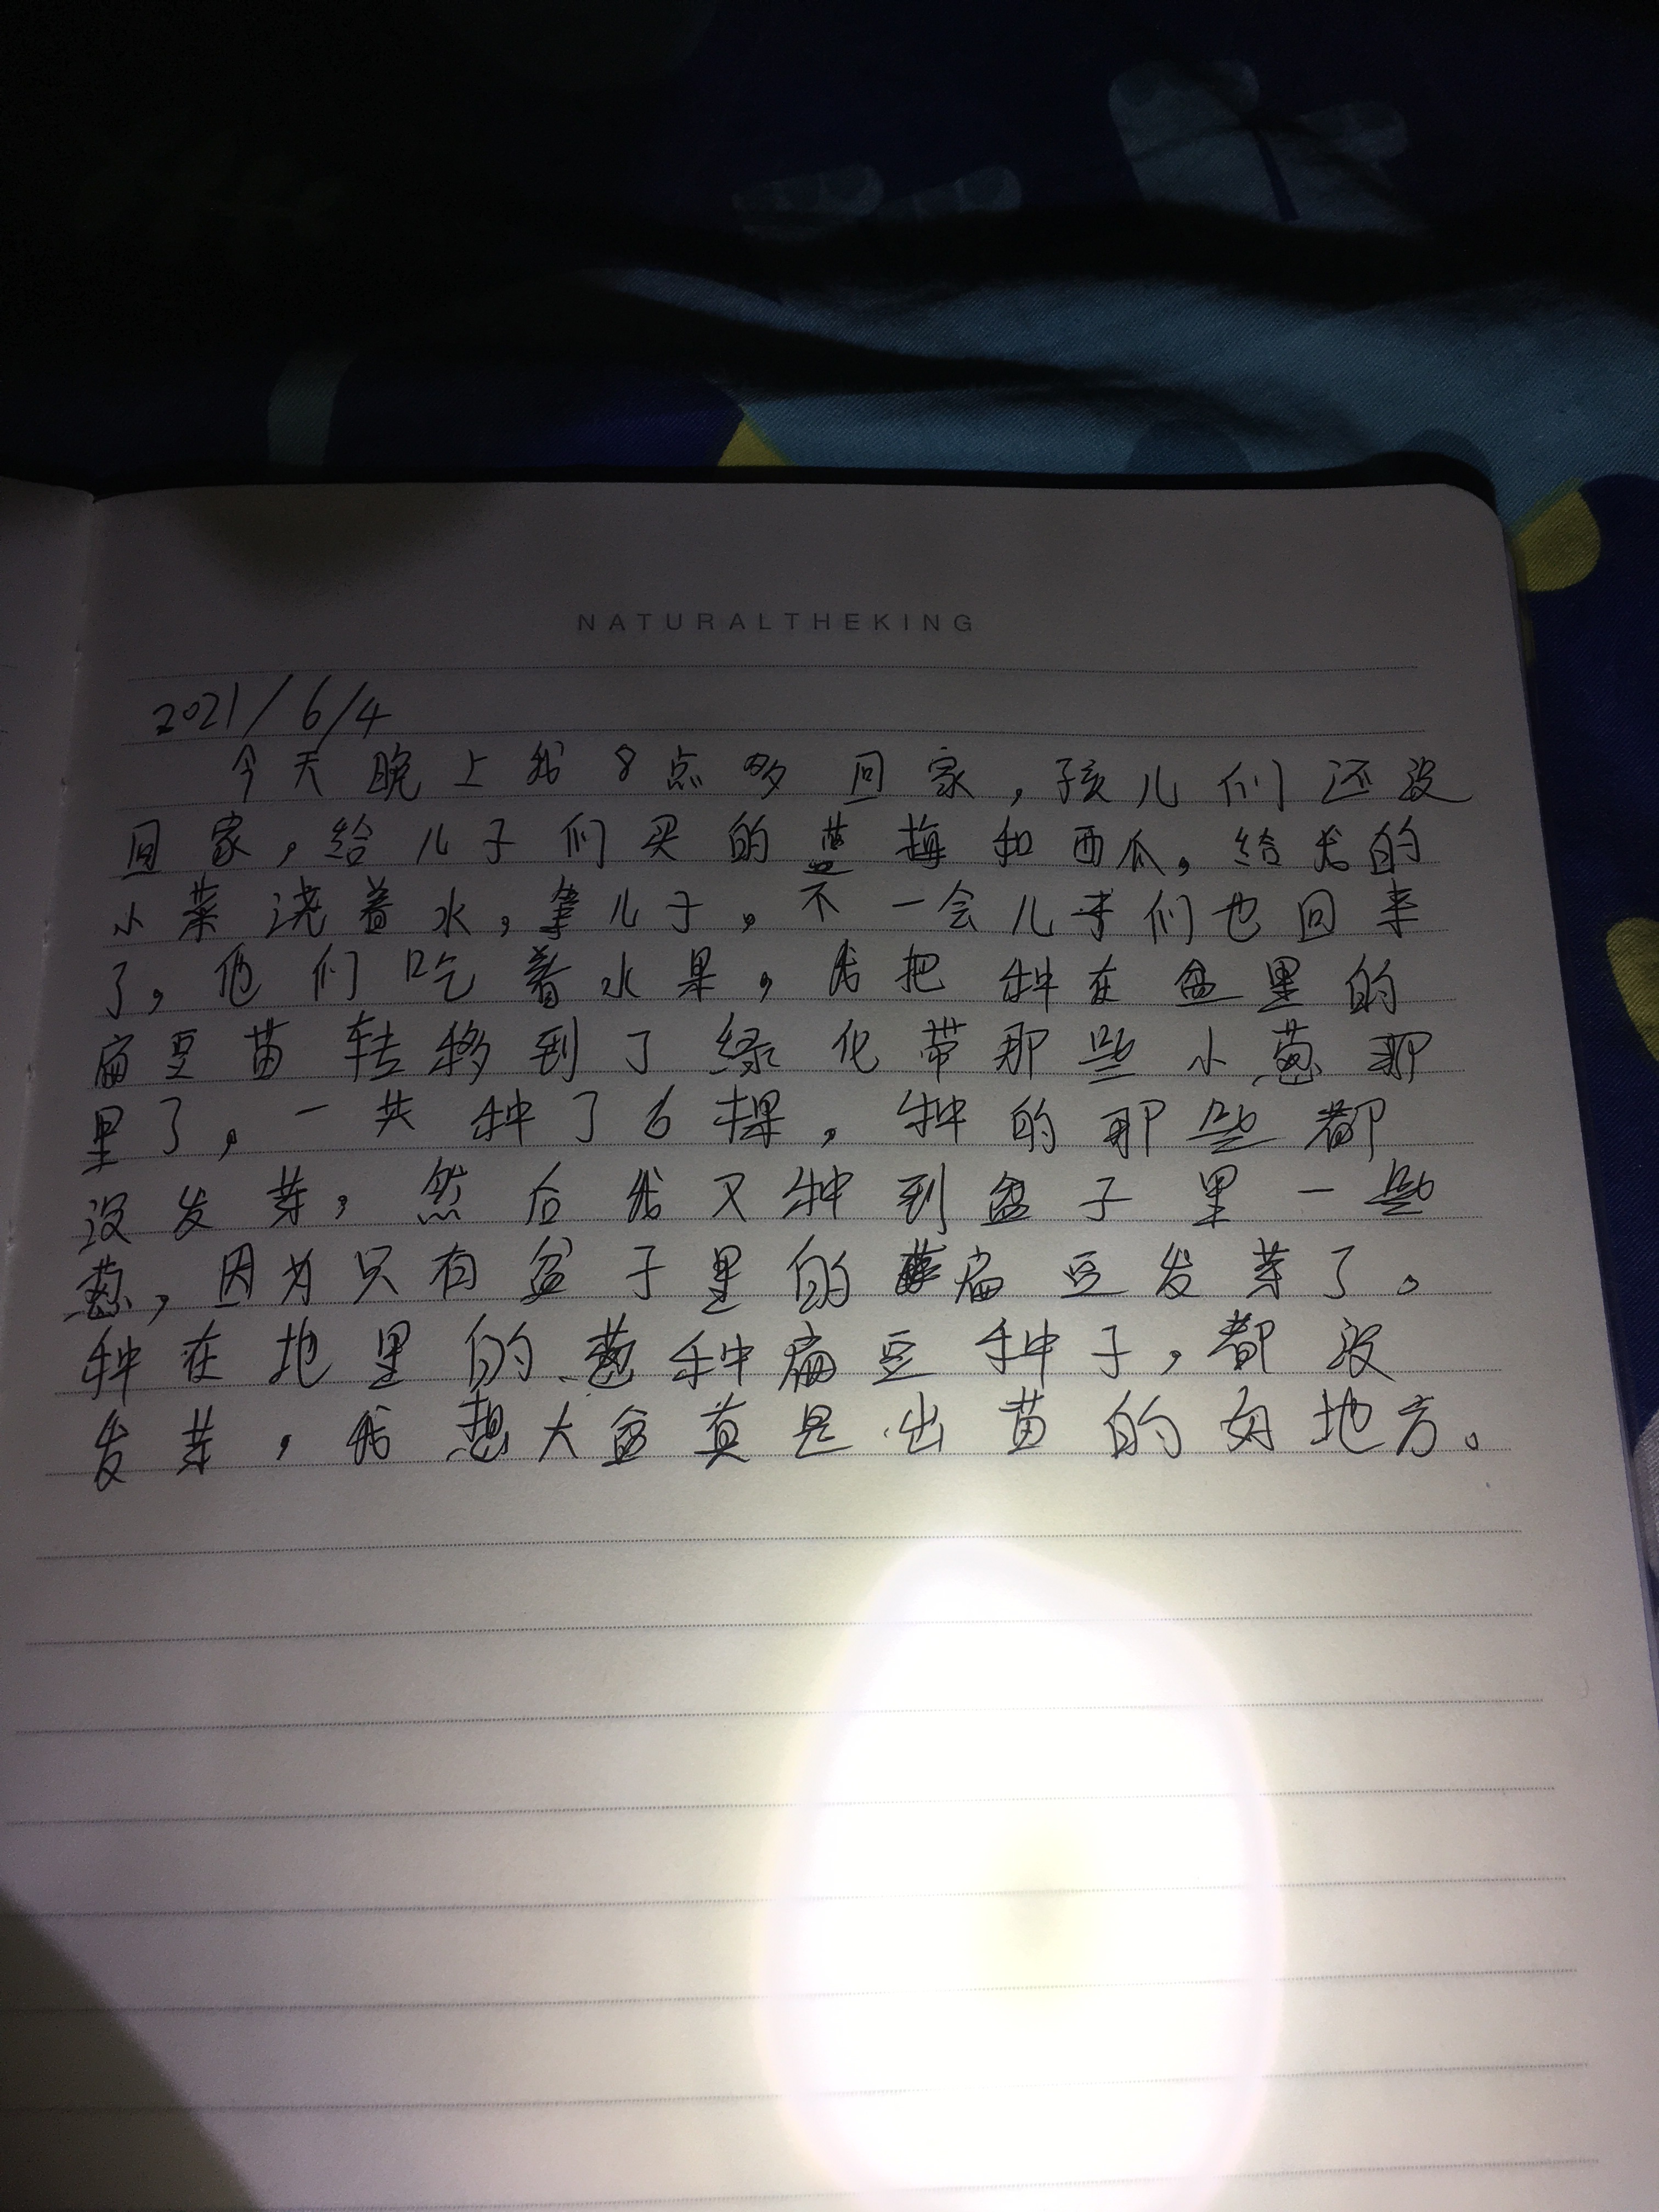 NATURALTHEKING
2021/6/4
今天晚上我8点多回家，孩儿们还没
回家，给儿子们买的蓝莓和西瓜，给我的
小菜浇着水，等儿子，不一会儿子们也回来
了，他们吃着水果，我把种在盆里的
扁豆苗转移到了绿化带那些小葱那
里了，一共种了6棵，种的那些都
没发芽，然后我又种到盆子里一些
葱，因为只有盆子里的扁豆发芽了。
种在地里的葱种扁豆种子，都没
发芽，我想大盆真是出苗的好地方。